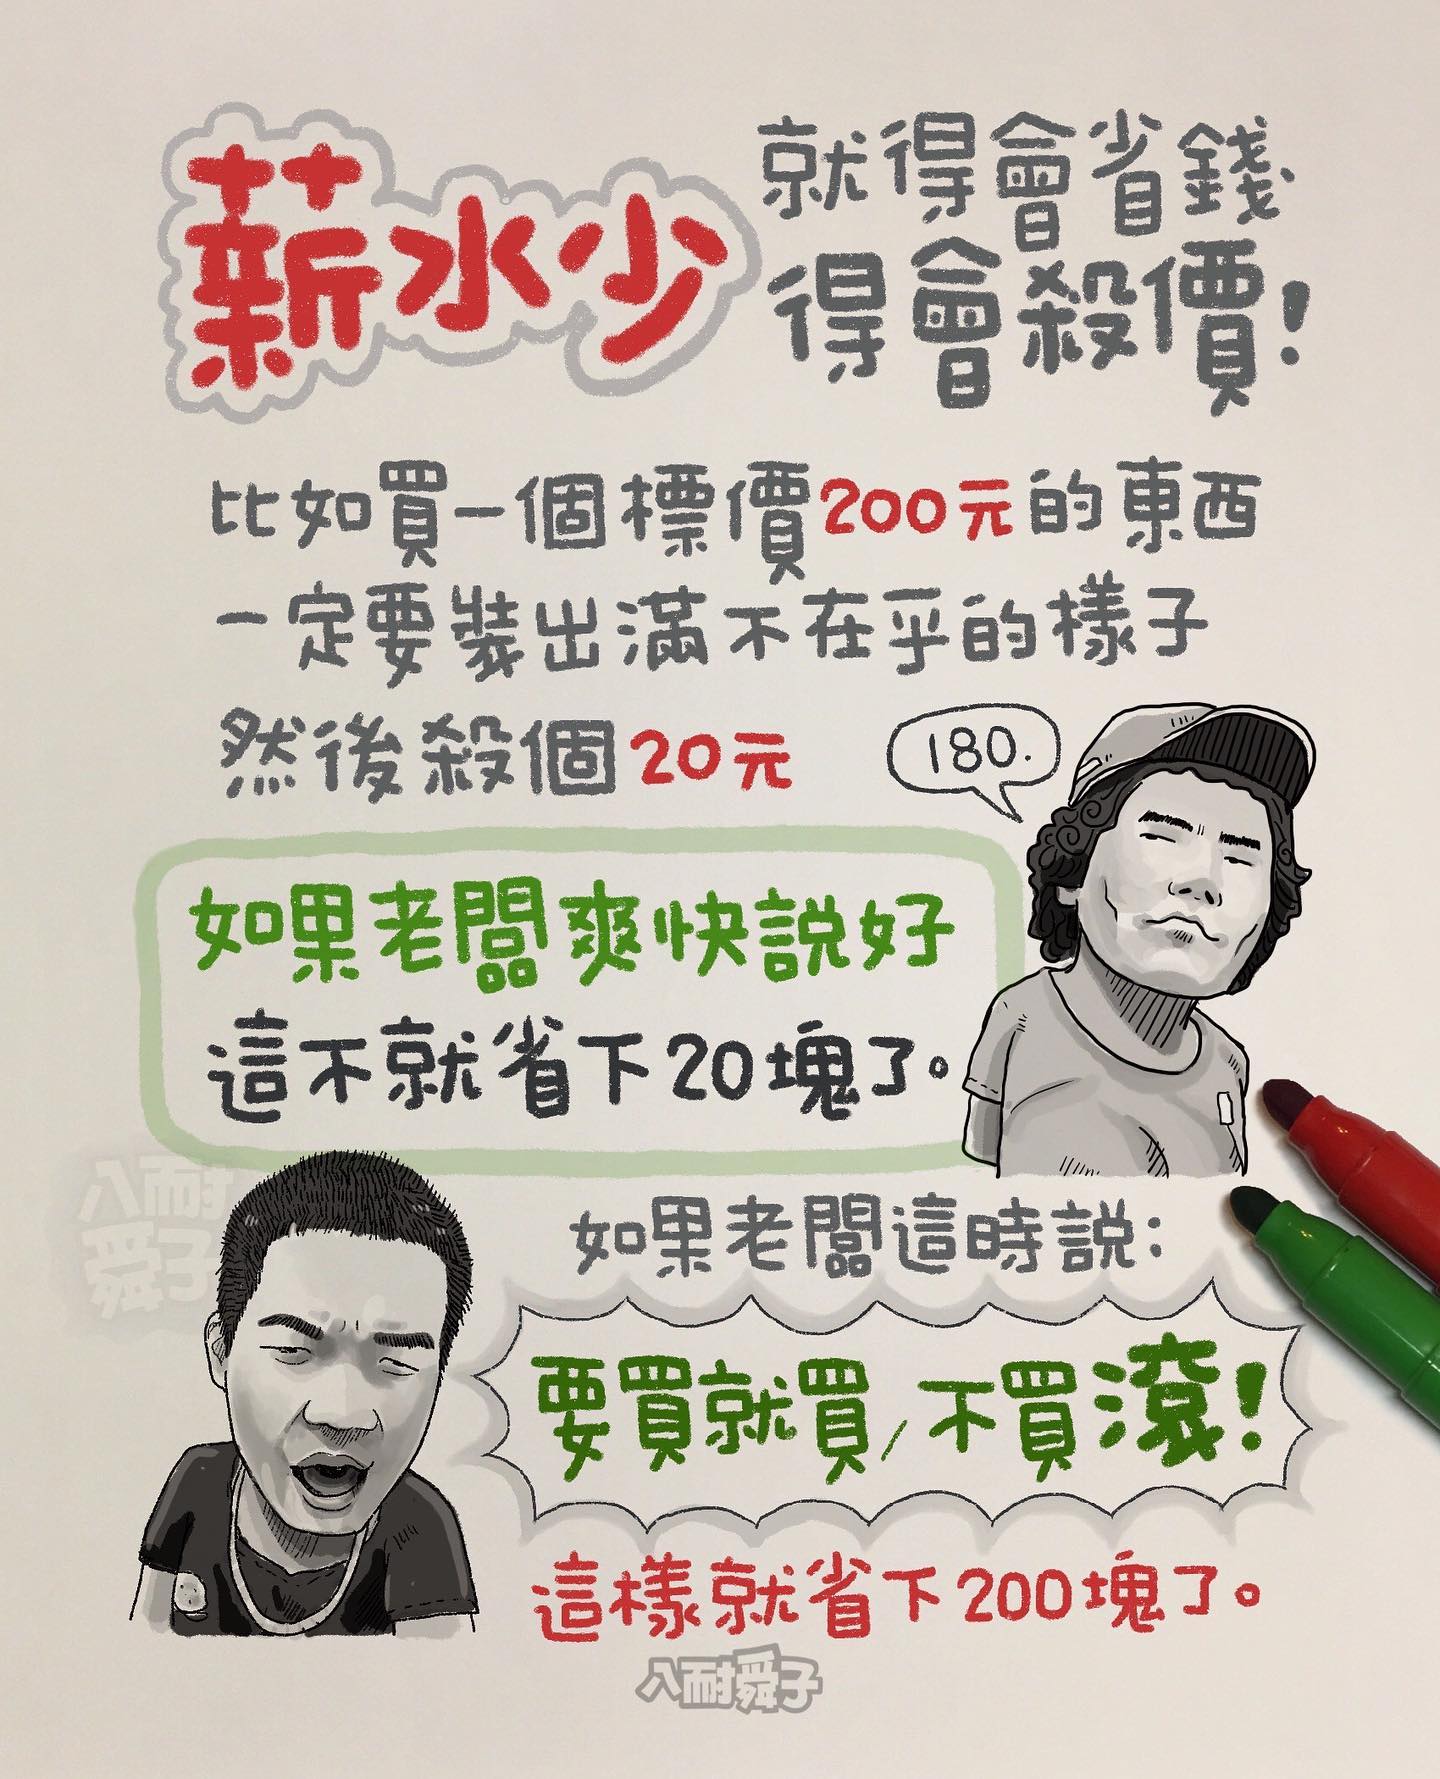 薪水少
就得會省錢
得會殺價!
比如買一個標價200元的東西
一定要裝出滿不在乎的樣子
然後殺個20元
180.
如果老闆爽快說好
這不就省下20塊了。
八耐
舜子
如果老闆這時說:
要買就買,不買滾!
這樣就省下200塊了。
八耐舜子